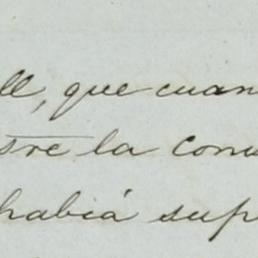 ll, que cuan
sre la conv
habiá sup